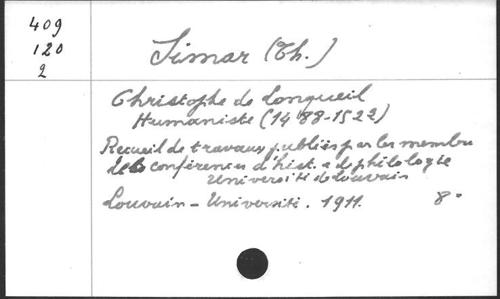 409
120
2
Simar (Th.)
Christophe de Longueil
Humaniste (1488-1522)
Recueil de travaux publiés par les membres
des conférences d'hist. & de philologie
Université de Louvain
Louvain - Université. 1911. 8°